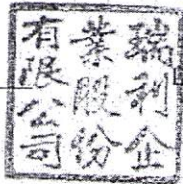 瑞利企
業股份
有限公司